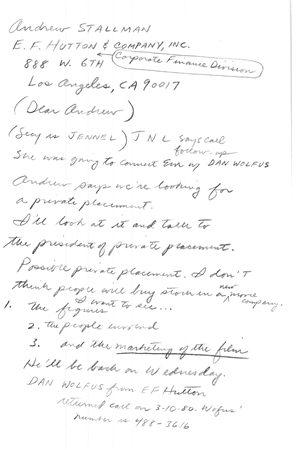 Andrew STALLMAN
E. F. HUTTON & COMPANY, INC.
888 W. 6TH (Corporate Finance Division)
Los Angeles, CA 90017
(Dear Andrew)
(Secy is JENNEL) J N L says call
follow-up
She was going to connect Em w/ DAN WOLFUS
Andrew says we're looking for
a private placement.
I'll look at it and talk to
the president of private placement.
Possible private placement. I don't
think people will buy stock in a new movie company.
I want to see...
1. the figures
2. the people involved
3. and the marketing of the film
He'll be back on Wednesday.
DAN WOLFUS from EF Hutton
returned call on 3-10-80. Wolfus'
number is 488-3616